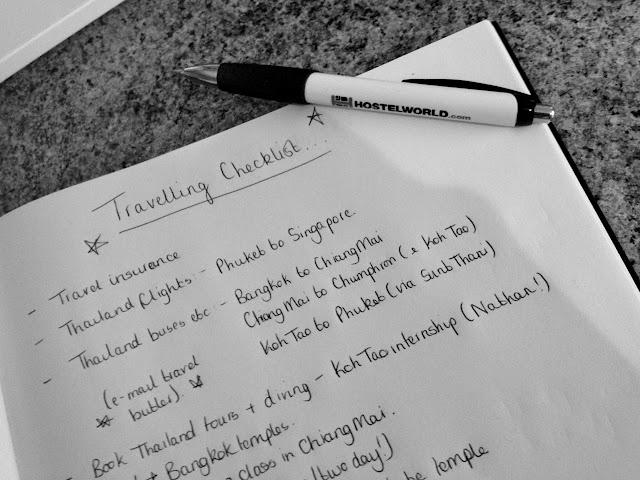 HOSTELWORLD.com
Travelling Checklist...
- Travel insurance
- Thailand flights:- Phuket to Singapore.
- Thailand buses etc:- Bangkok to Chiang Mai
Chiang Mai to Chumphron (& Koh Tao)
Koh Tao to Phuket (via Surat Thani)
(e-mail travel
butler).
- Book Thailand tours + diving - Koh Tao internship (Nathan!)
Bangkok temples.
class in Chiang Mai.
(two day!)
temple